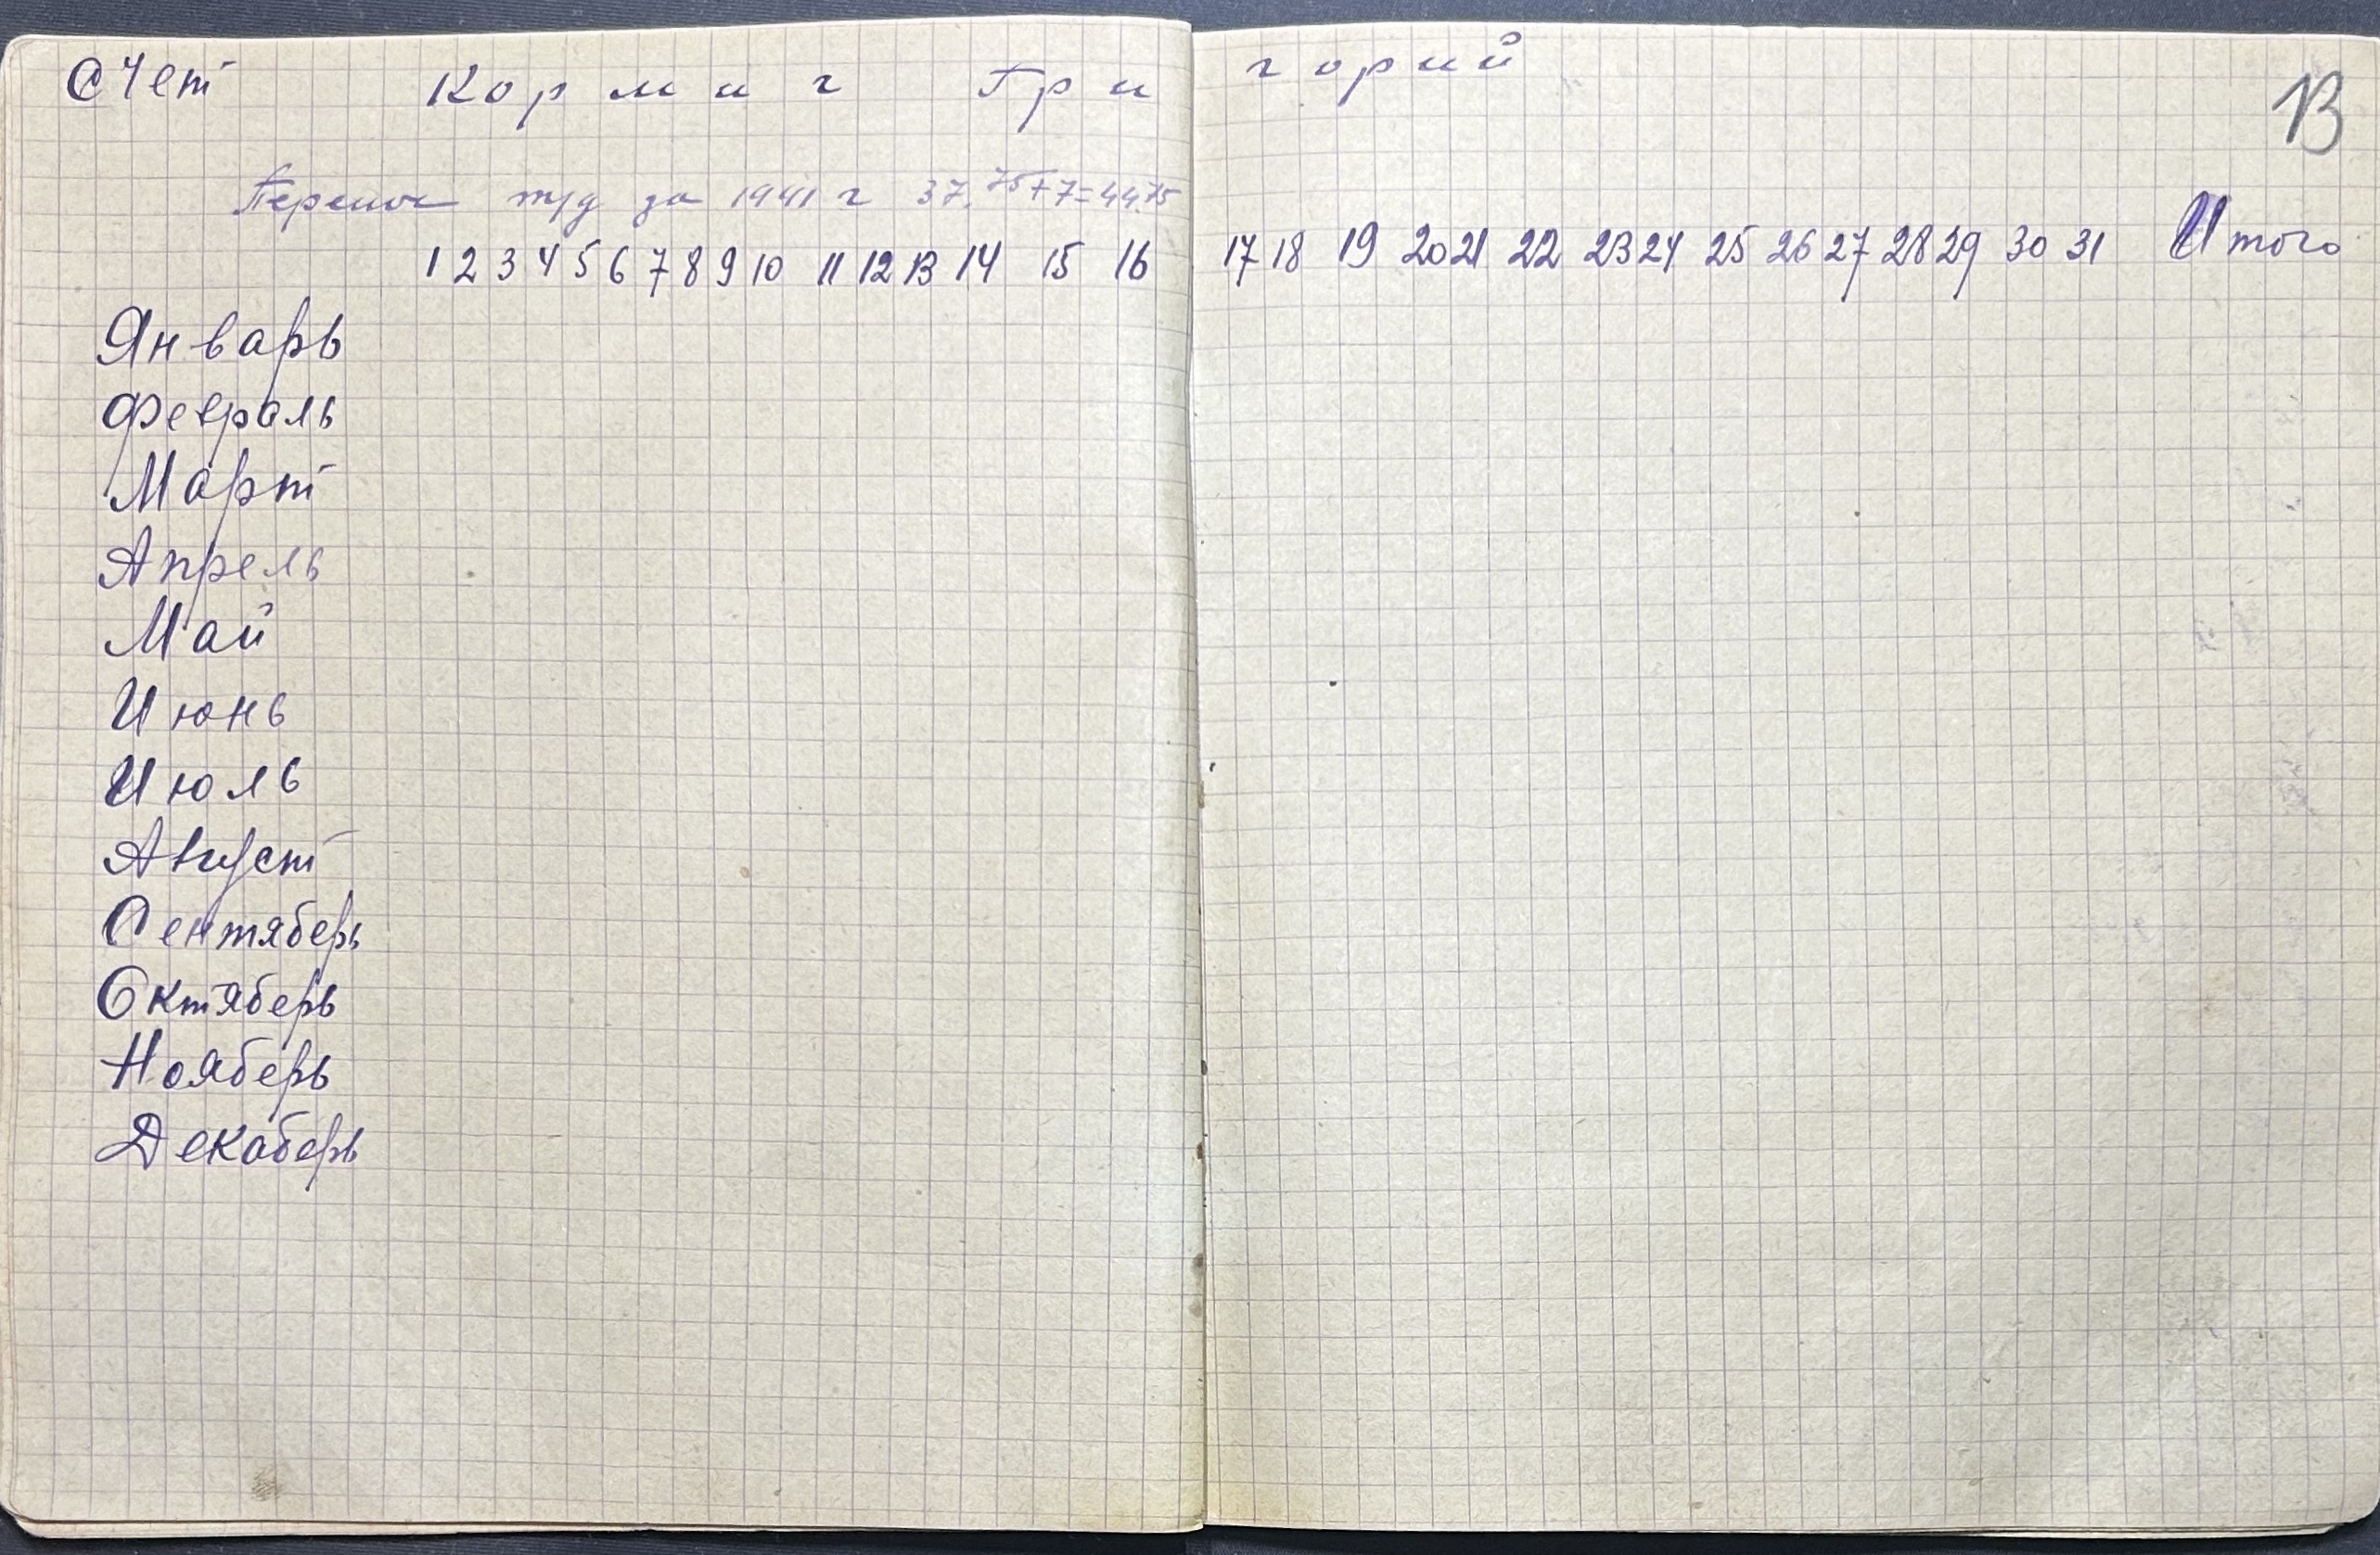 Счет Кормиг Григорий
13
Перенос тр/д за 1941 г 37.75+7=44.75
1 2 3 4 5 6 7 8 9 10 11 12 13 14 15 16 17 18 19 20 21 22 23 24 25 26 27 28 29 30 31 Итого
Январь
Февраль
Март
Апрель
Май
Июнь
Июль
Август
Сентяберь
Октяберь
Нояберь
Декаберь